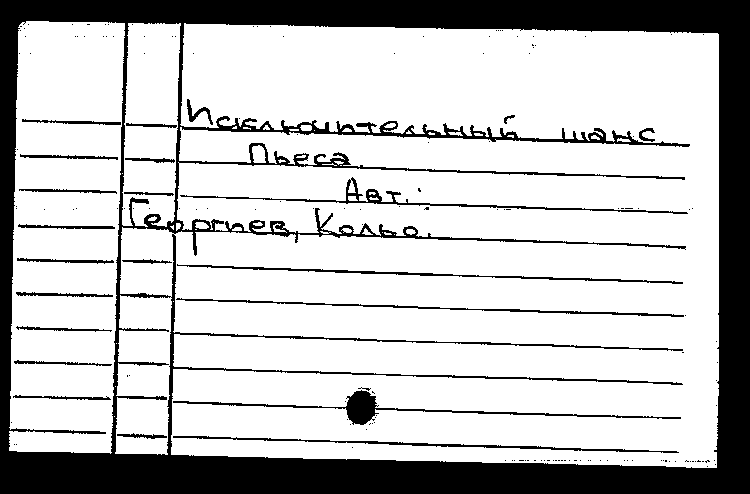 Исключительный шанс
Пьеса.
Авт.:
Георгиев, Кольо.